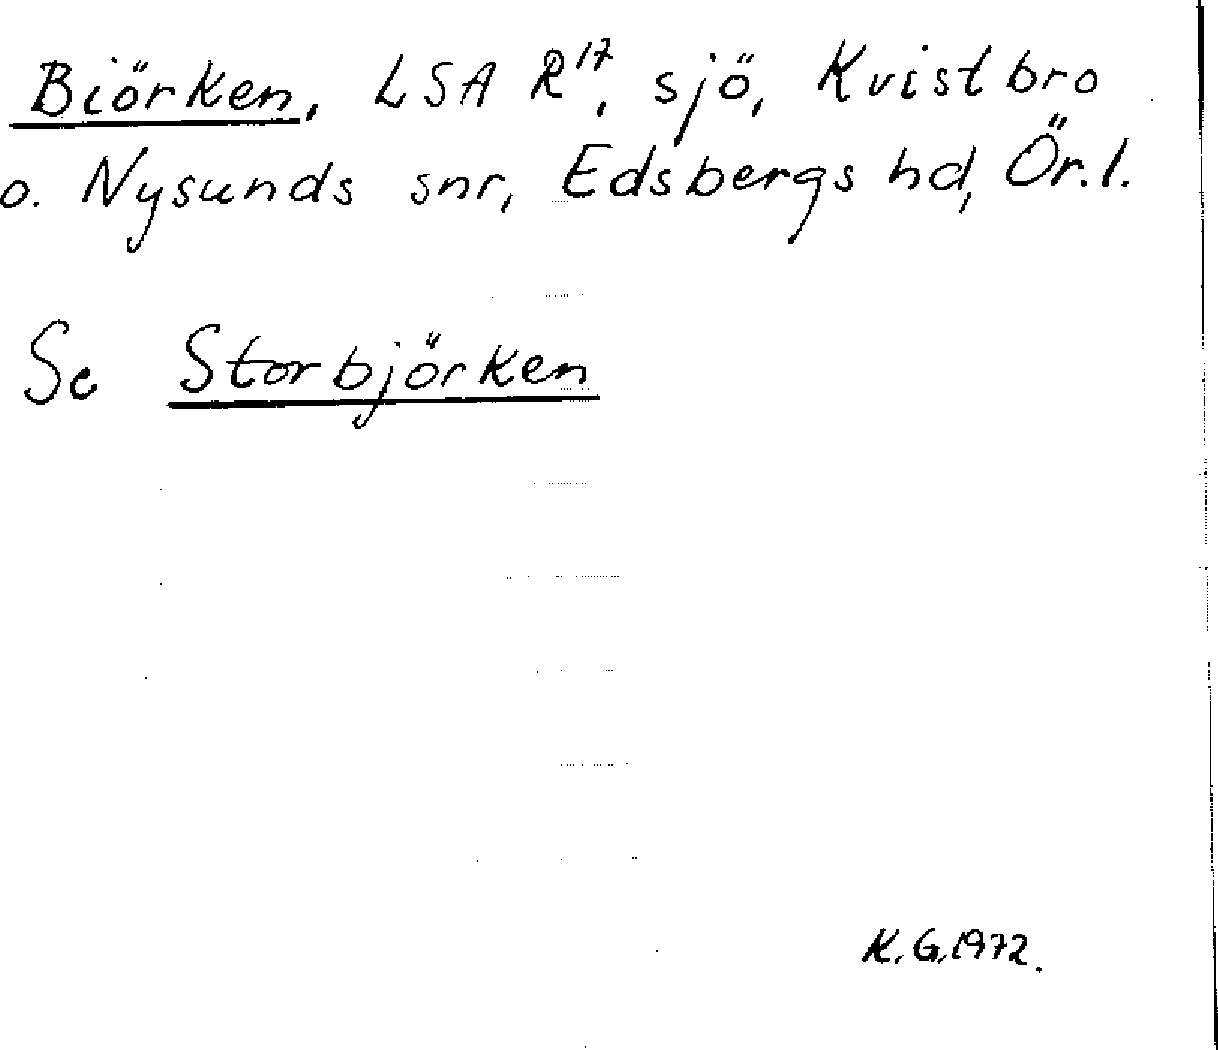 Biörken, LSA R17, sjö, Kvistbro
o. Nysunds snr, Edsbergs hd, Ör.l.
Se Storbjörken
K.G.1972.